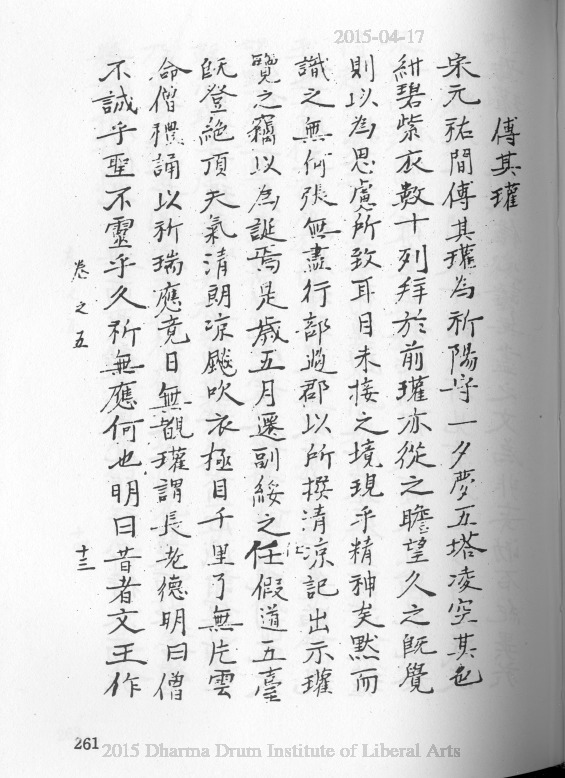 2015-04-17
傅其瓘
宋元祐間傅其瓘為祈陽守一夕夢五塔凌空其色
紺碧紫衣數十列拜於前瓘亦從之瞻望久之旣覺
則以為思慮所致耳目未接之境現乎精神矣默而
識之無何張無盡行部過郡以所撰清涼記出示瓘
覽之竊以為誕焉是歲五月遷副綏之任假道五臺
旣登絶頂天氣清朗凉飈吹衣極目千里了無片雲
命僧禮誦以祈瑞應竟日無覩瓘謂長老德明曰僧
不誠乎聖不靈乎久祈無應何也明曰昔者文王作
卷之五
十三
261
2015 Dharma Drum Institute of Liberal Arts